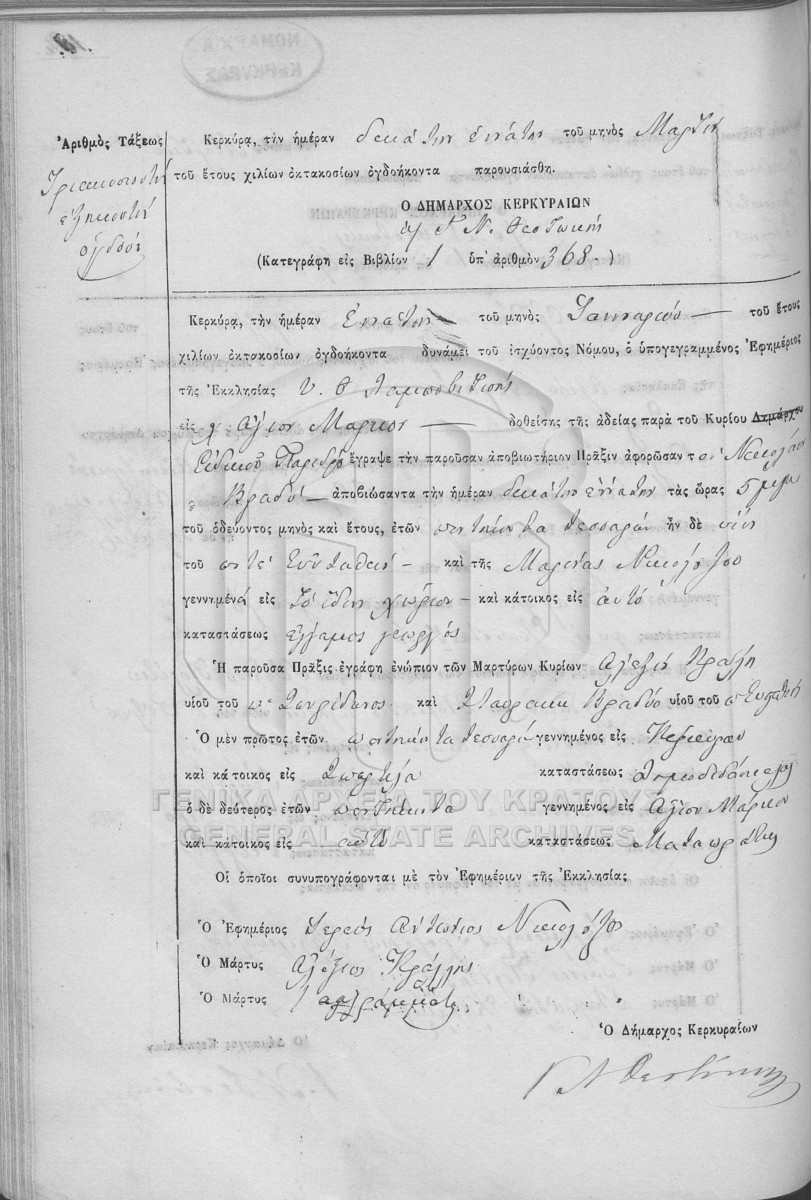 ΝΟΜΑΡΧΙΑ
ΚΕΡΚΥΡΑΣ
Ἀριθμὸς Τάξεως
Τριακοσιοστὴ
ἑξηκοστὴ
ὀγδόη
Κερκύρᾳ, τὴν ἡμέραν δεκάτην ἐνάτην τοῦ μηνὸς Μαρτίου
τοῦ ἔτους χιλίων ὀκτακοσίων ὀγδοήκοντα παρουσιάσθη.
Ο ΔΗΜΑΡΧΟΣ ΚΕΡΚΥΡΑΙΩΝ
Γ. Ν. Θεοτόκης
(Κατεγράφη εἰς Βιβλίον 1 ὑπ' ἀριθμὸν 368.)
Κερκύρᾳ, τὴν ἡμέραν Ἐνάτην τοῦ μηνὸς Ἰανουαρίου τοῦ ἔτους
χιλίων ὀκτακοσίων ὀγδοήκοντα δυνάμει τοῦ ἰσχύοντος Νόμου, ὁ ὑπογεγραμμένος Ἐφημέριος
τῆς Ἐκκλησίας Υ. Θ. Λαμποβιτίσης
εἰς χ. Ἅγιον Μάρκον δοθείσης τῆς ἀδείας παρὰ τοῦ Κυρίου Δημάρχου
Εἰδικοῦ Παρέδρου ἔγραψε τὴν παροῦσαν ἀποβιωτήριον Πρᾶξιν ἀφορῶσαν τὸν Νικολάου
Βραδύ ἀποβιώσαντα τὴν ἡμέραν δεκάτην ἐννάτην τὰς ὥρας 5 μ.μ.
τοῦ ὁδεύοντος μηνὸς καὶ ἔτους, ἐτῶν πεντήκοντα τεσσάρων ἦν δὲ υἱὸς
τοῦ ποτὲ Εὐσταθίου καὶ τῆς Μαρίνας Νικολούζου
γεννημένα εἰς τὸ ἴδιον χωρίον καὶ κάτοικος εἰς αὐτό
καταστάσεως ἔγγαμος γεωργός
Ἡ παροῦσα Πρᾶξις ἐγράφη ἐνώπιον τῶν Μαρτύρων Κυρίων Ἀλεξίου Κράλλη
υἱοῦ τοῦ πο Σπυρίδωνος καὶ Σταυράκη Βραδύ υἱοῦ τοῦ π Εὐσταθίου
Ὁ μὲν πρῶτος ἐτῶν πεντήκοντα τεσσάρων γεννημένος εἰς Κέρκυραν
καὶ κάτοικος εἰς καταστάσεως Δημοδιδάσκαλος
ὁ δὲ δεύτερος ἐτῶν πεντήκοντα γεννημένος εἰς Ἅγιον Μάρκον
καὶ κάτοικος εἰς αὐτό καταστάσεως
Οἱ ὁποῖοι συνυπογράφονται μὲ τὸν Ἐφημέριον τῆς Ἐκκλησίας
Ὁ Ἐφημέριος Ἱερεὺς Ἀντώνιος Νικολούζος
Ὁ Μάρτυς Ἀλέξιος Κράλλης
Ὁ Μάρτυς ἀγράμματος
Ὁ Δήμαρχος Κερκυραίων
Γ Ν Θεοτόκης
ΓΕΝΙΚΑ ΑΡΧΕΙΑ ΤΟΥ ΚΡΑΤΟΥΣ
GENERAL STATE ARCHIVES